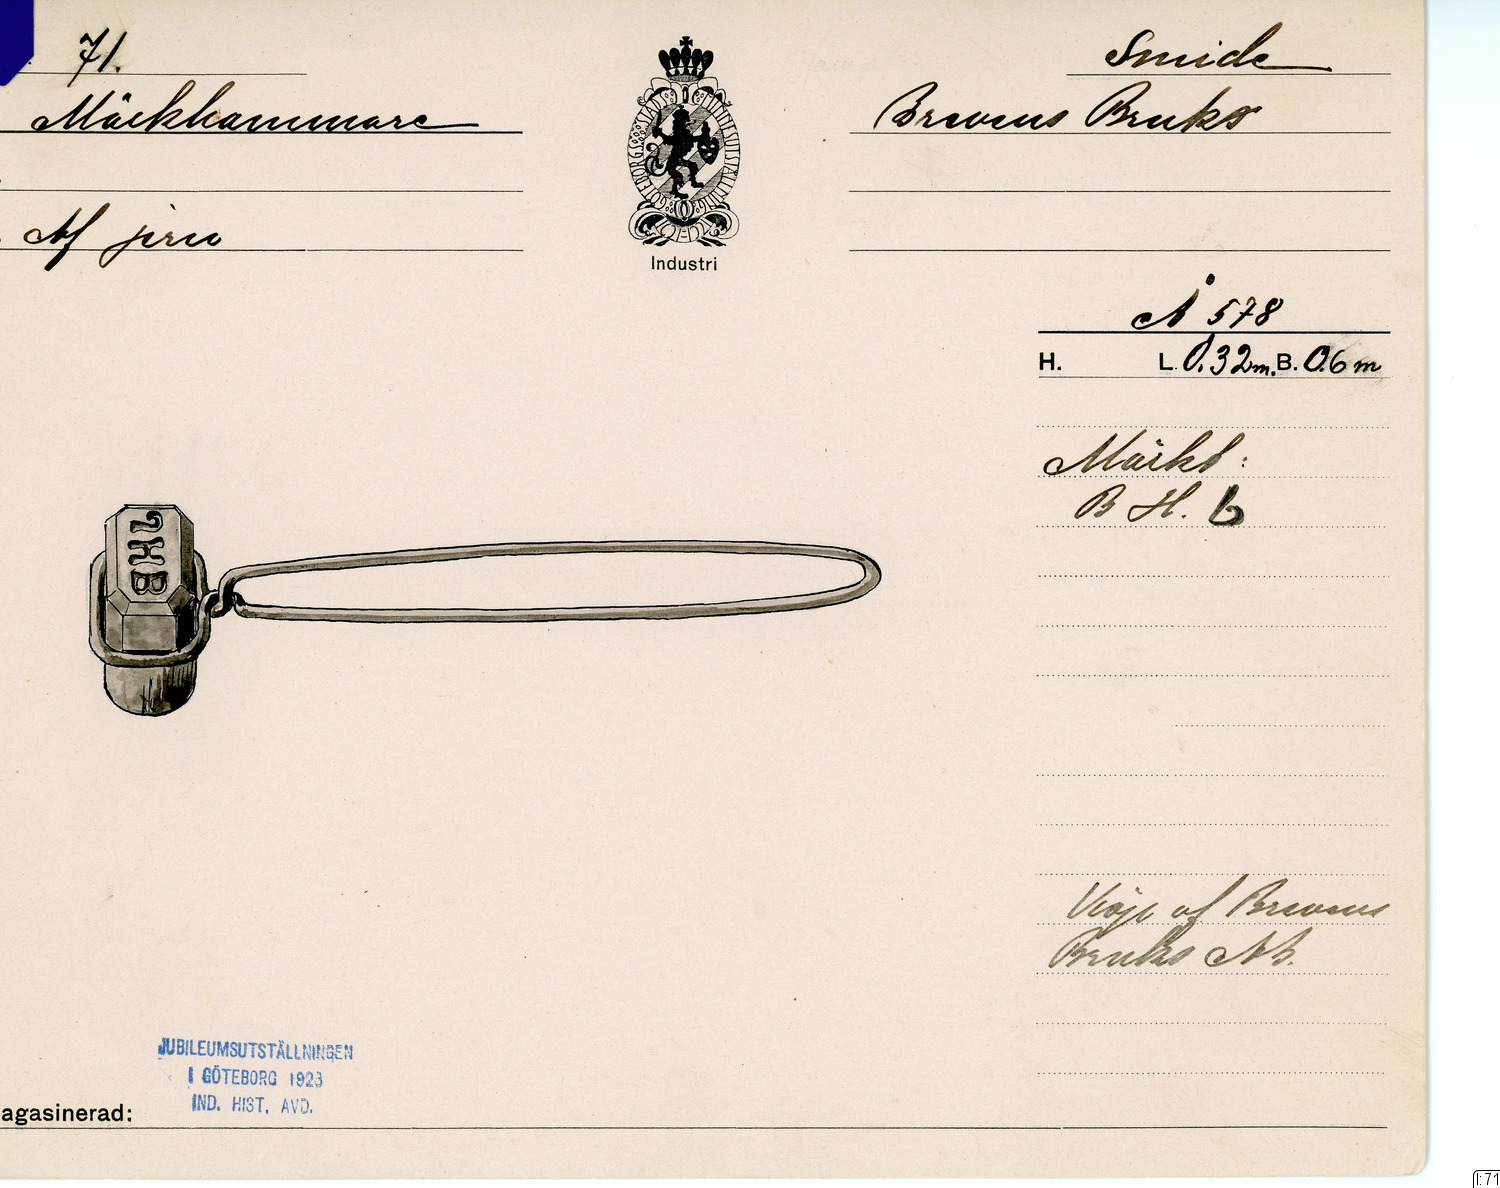 71.
Märkhammare
Af järn
GÖTEBORGS STADS INDUSTRI UTSTÄLLNING
Industri
Smide
Brevens Bruks
Å 578
H. L. 0.32 m. B. 0.6 m
Märkt:
B H. L
Köpt af Brevens
Bruks AB.
LHB
JUBILEUMSUTSTÄLLNINGEN
I GÖTEBORG 1923
IND. HIST. AVD.
agasinerad:
I:71